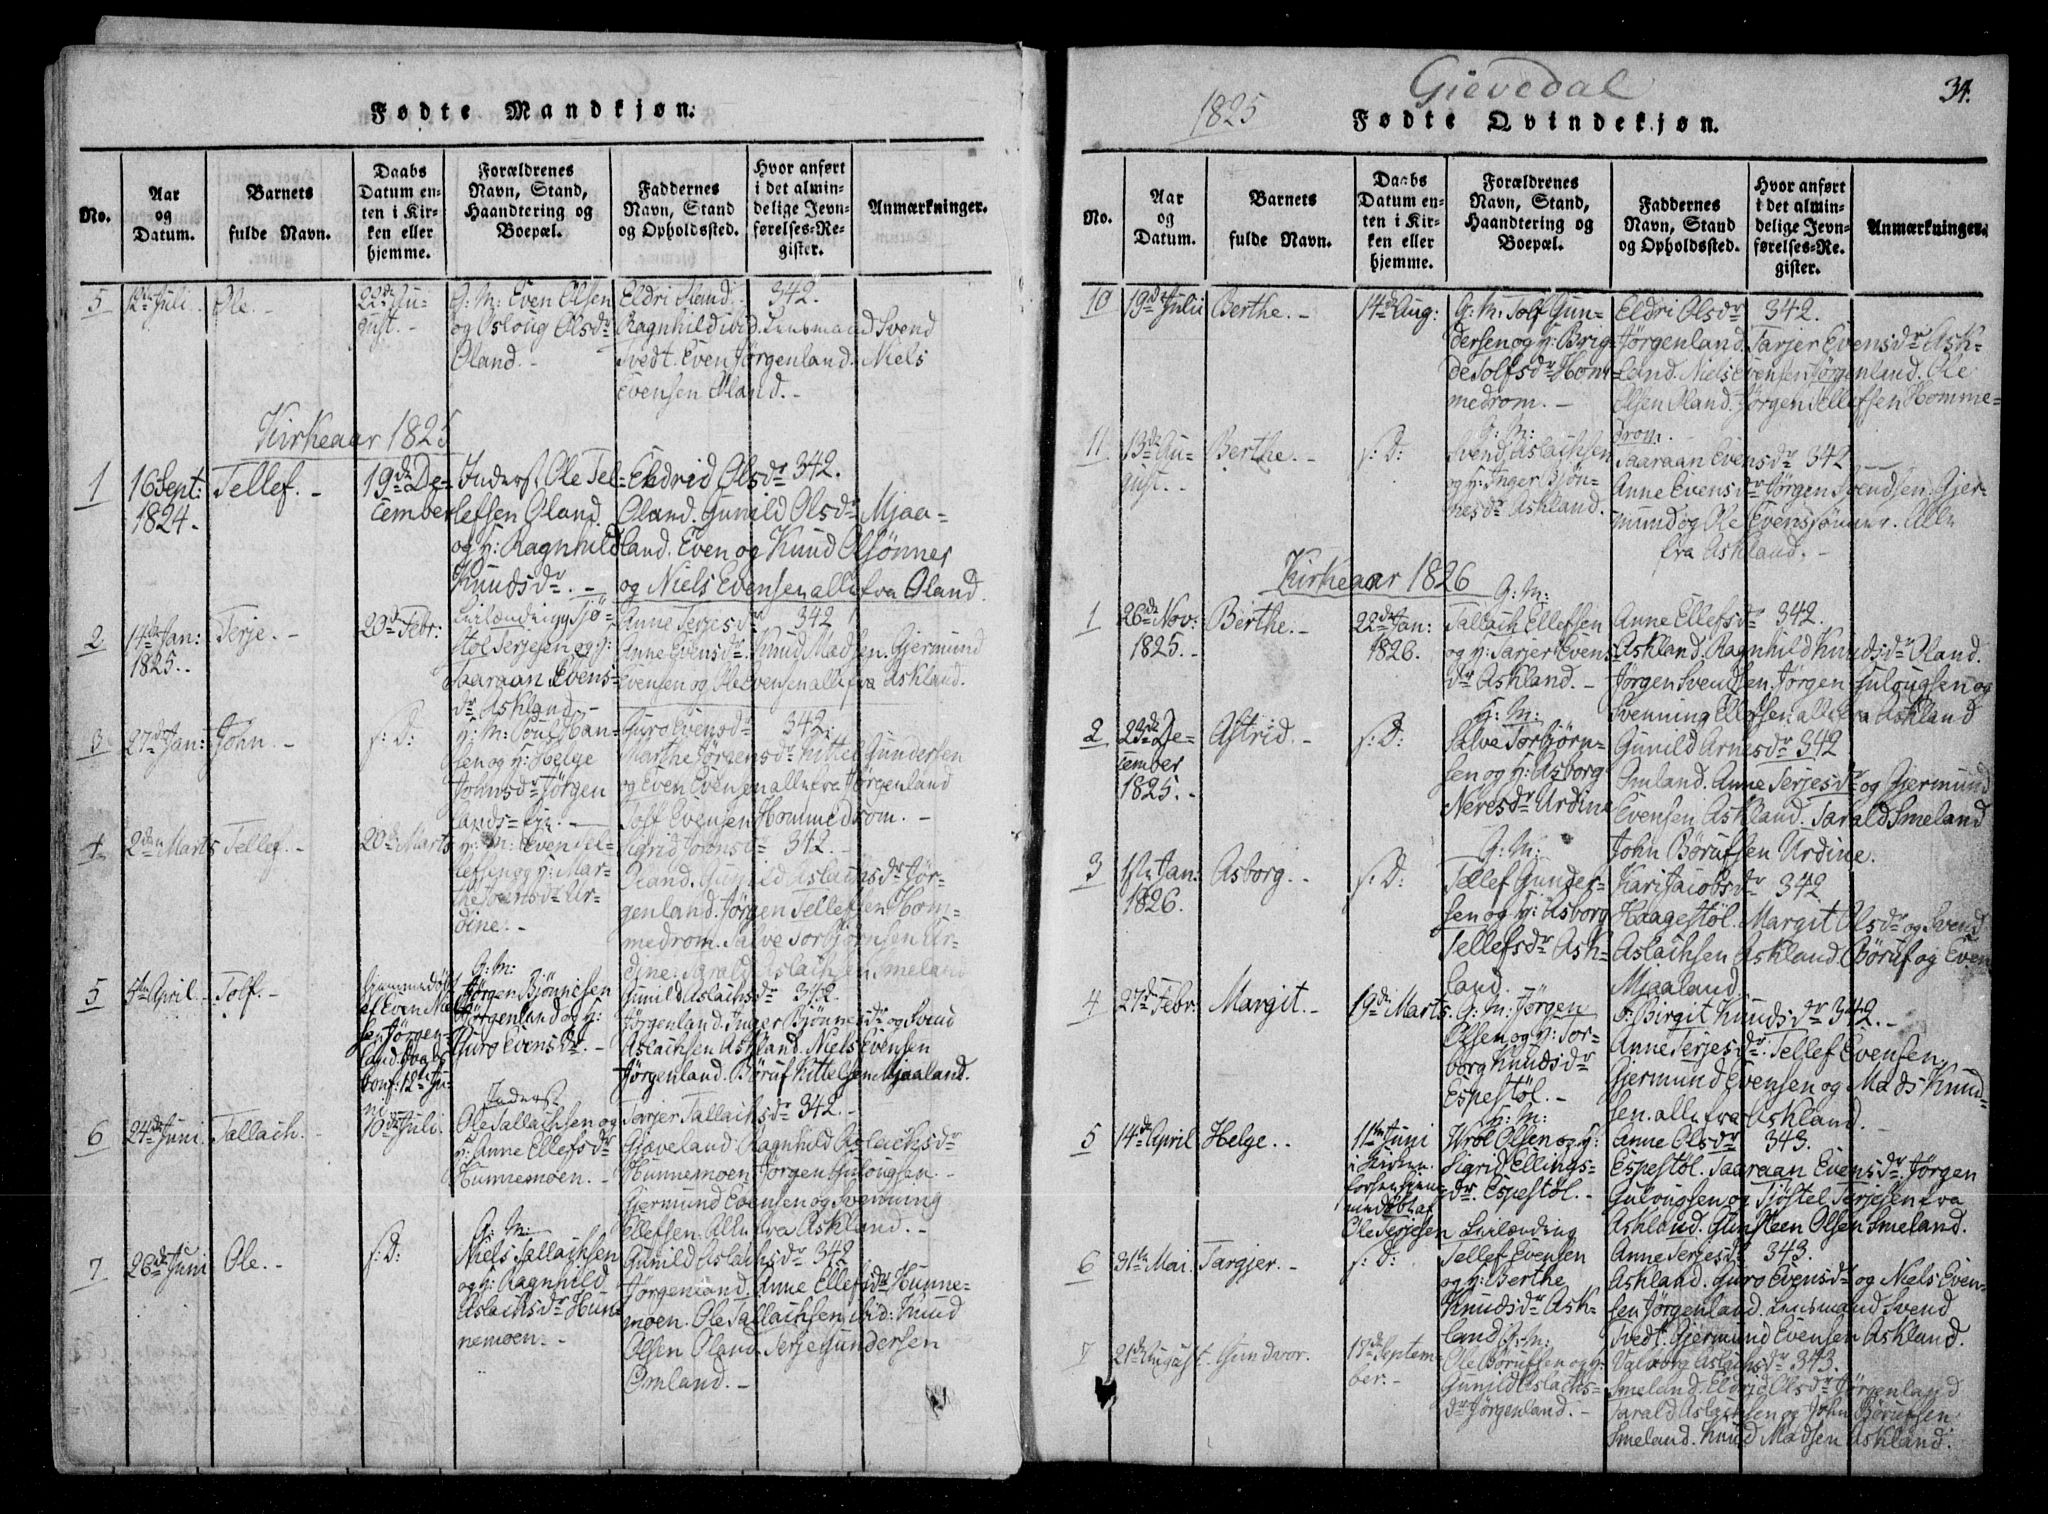 Fødte Mandkjøn.
No.
Aar
og
Datum.
Barnets
fulde Navn.
Daabs
Datum en-
ten i Kir-
ken eller
hjemme.
Forældrenes
Navn, Stand,
Haandtering og
Boepæl.
Faddernes
Navn, Stand
og Opholdssted.
Hvor anført
i det almin-
delige Jevn-
førelses-Re-
gister.
Anmærkninger.
5
12te Juli.
Ole.-
22de Au-
gust.-
G: M: Even Olsen
og Osloug Olsdr
Øland.-
Eldri Øland. 342.
Ragnhild ibid. Lensmand Svend
Tvedt. Even Jørgenland. Niels
Evensen Øland.-
Kirkeaar 1825
1
16 Sept:
1824.
Tellef.-
19de De-
cember
Inderst Ole Tel-
lefsen Øland
og H: Ragnhild
Knudsdr.-
Eldrid Olsdr 342.
Øland. Gunild Olsdr Mjaa-
land. Even og Knud Olsønner
og Niels Evensen alle fra Øland.
2
14de Jan:
1825.
Terje.-
20de Febr:
Leilænding Tjø-
stol Terjesen og H:
Saaraan Evens-
dr Askland.-
Anne Terjesdr 342
Anne Evensdr. Knud Madsen. Gjermund
Evensen og Ole Evensen alle fra Askland.
3
27de Jan:
John.-
s: D:
G: M: Poul Han-
sen og H: Helge
Johnsdr Jørgen
lands-eje.-
Guro Evensdr 342.
Marthe Jørgensdr Kittel Gundersen
og Even Evensen alle fra Jørgenland
Tolf Evensen Hommedrom.-
4
2den Marts
Tellef.-
20de Marts
G: M: Even Tel-
lefsen og H: Mar-
the Joensdr Ur-
dine.-
Sigrid Joensdr 342.-
Øland. Gunild Aslachsdr Jør-
genland. Jørgen Tellefsen Hom-
medrom. Salve Torbjørnsen Ur-
dine. Tarald Aslachsen Smeland
5
4de April.
Tolf.-
hjemmedøbt
af Even Niel
sen Jørgen-
land. Daab
conf: 12te Ju-
ni
G: M:
Jørgen Bjønnesen
Jørgenland og H:
Guro Evensdr.-
Gunild Aslachsdr 342.
Jørgenland. Inger Bjønnesdr og Svend
Aslachsen Askland. Niels Evensen
Jørgenland. Børuf Kittelsen Mjaaland.
6
24de Juni
Tallach.-
10de Juli.
Inderst
Ole Tallachsen og
H: Anne Ellefsdr
Hunnemoen.-
Tarjer Tallachsdr 342.-
Gjøveland Ragnhild Aslachsdr
Hunnemoen. Jørgen Gulougsen-
Gjermund Evensen og Svenning
Ellefsen. Alle fra Askland.-
7
26de Juni
Ole.-
s: D:
G: M:
Niels Tallachsen
og H: Ragnhild
Aslachsdr Hun-
nemoen.-
Gunild Aslachsdr 342.
Jørgenland. Anne Ellefsdr Hunne-
moen. Ole Tallachsen ibid: Knud
Olsen Øland. Terje Gundersen
Omland.-
Gievedal
34.
1825
Fødte Qvindekjøn.
No.
Aar
og
Datum.
Barnets
fulde Navn.
Daabs
Datum en-
ten i Kir-
ken eller
hjemme.
Forældrenes
Navn, Stand,
Haandtering og
Boepæl.
Faddernes
Navn, Stand
og Opholdssted.
Hvor anført
i det almin-
delige Jevn-
førelses-Re-
gister.
Anmærkninger.
10
19de Julii
Berthe.-
14de Aug:
G: M: Tolf Gun-
dersen og H: Brig-
de Tolfsdr Hom-
medrom.-
Eldri Olsdr 342.
Jørgenland. Tarjer Evensdr Ask-
land. Niels Evensen Jørgenland. Ole
Olsen Øland. Jørgen Tellefsen Homme-
drom.
11
13de Au-
gust.-
Berthe.-
s: D:
G: M:
Svend Aslachsen
og H: Inger Bjøn-
nesdr Askland.
Saaraan Evensdr 342
Anne Evensdr Jørgen Svendsen. Gjer-
mund og Ole Evenssønner. Alle
fra Askland.-
Kirkeaar 1826
1
26de Nov:
1825.-
Berthe.-
22de Jan:
1826.
G: M:
Tallach Ellefsen
og H: Tarjer Evens
dr Askland.-
Anne Ellefsdr 342.
Askland. Ragnhild Knudsdr Øland.
Jørgen Svendsen. Jørgen Gulougsen og
Svenning Ellefsen alle fra Askland
2
23de De-
cember
1825.-
Astrid.-
s: D:
G: M:
Salve Torbjørn-
sen og H: Asborg
Neresdr Urdine
Gunild Arnesdr 342
Omland. Anne Terjesdr og Gjermund
Evensen Askland. Tarald Smeland
John Børufsen Urdine.
3
1ste Jan:
1826.
Asborg.-
s: D:
G: M:
Tellef Gunder-
sen og H: Asborg
Tellefsdr Ask-
land.
Kari Jacobsdr 342
Haagestøl. Margit Olsdr og Svend
Aslachsen Askland. Børuf og Even
Mjaaland.
4
27de Febr:
Margit.-
19de Marts.
G: M: Jørgen
Olsen og H: Tor-
borg Knudsdr
Espestøl.-
Birgit Knudsdr 342.-
Anne Terjesdr. Tellef Evensen.
Gjermund Evensen og Mads Knud-
sen. alle fra Askland.-
5
14de April
Helge.-
11te Juni
i Kirken.
forhen hjem-
medøbt af
Ole Terjesen
G: M:
Wrål Olsen og H:
Sigrid Ellings-
dr. Espestøl.-
Anne Olsdr 343.
Espestøl. Saaraan Evensdr. Jørgen
Gulougsen og Tjøstel Terjesen fra
Askland. Gunsteen Olsen Smeland.
6
31te Mai.
Targjer.-
s: D:
Leilænding
Tellef Evensen
og H: Berthe
Knudsdr Ask-
land
Anne Terjesdr 343.
Askland. Guro Evensdr og Niels Even-
sen Jørgenland. Lensmand Svend
Tvedt. Gjermund Evensen Askland.
7
21de August.
Gundvor.
17de Septem-
ber.-
G: M:
Ole Børufsen og H:
Gunild Aslachs-
dr Jørgenland.-
Valborg Aslachsdr 343.
Smeland. Eldrid Olsdr Jørgenland
Tarald Aslachsen og John Børufsen
Smeland. Knud Madsen Askland.